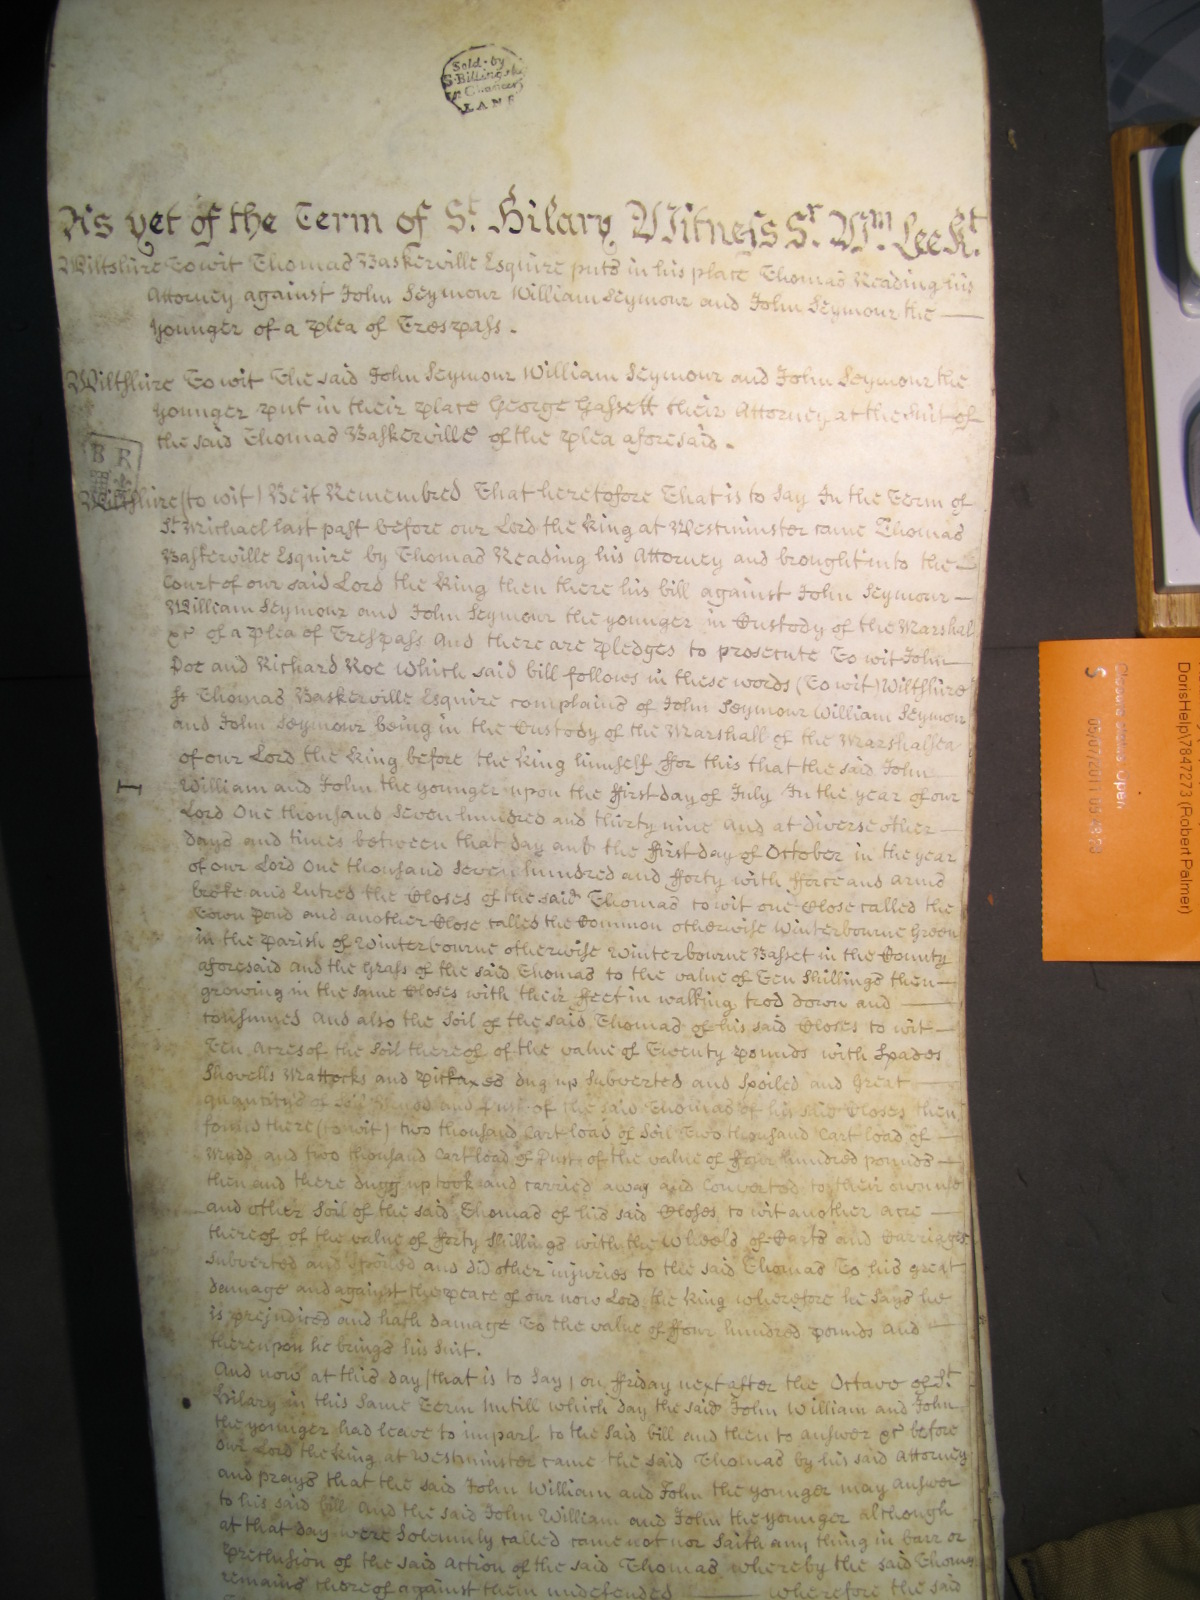 Sold by
S. Billings
Chancery
LANE
As yet of the Term of St. Hilary Witness Sr. Wm. Lee Kt.
Wiltshire To wit Thomas Baskerville Esquire puts in his place Thomas Reading his
Attorney against John Seymour William Seymour and John Seymour the
younger of a plea of Trespass.
Wiltshire To wit The said John Seymour William Seymour and John Seymour the
younger put in their place George Gassett their Attorney at the Suit of
the said Thomas Baskerville of the plea aforesaid.
B R
Wiltshire (to wit) Be it Remembred That heretofore That is to Say In the Term of
St. Michael last past before our Lord the King at Westminster came Thomas
Baskerville Esquire by Thomas Reading his Attorney and brought into the
Court of our said Lord the King then there his bill against John Seymour
William Seymour and John Seymour the younger in Custody of the Marshal
&c of a plea of Trespass And there are pledges to prosecute To wit John
Doe and Richard Roe Which said bill follows in these words (To wit) Wiltshire
ss Thomas Baskerville Esquire complains of John Seymour William Seymour
and John Seymour being in the Custody of the Marshall of the Marshalsea
of our Lord the King before the King himself ffor this that the said John
William and John the younger upon the ffirst day of July In the year of our
Lord One thousand Seven hundred and thirty nine And at diverse other
days and times between that day and the ffirst day of October in the year
of our Lord One thousand Seven hundred and fforty with fforce and arms
broke and Entred the Closes of the said Thomas to wit one Close called the
Town Pond and another Close called the Common otherwise Winterbourne Green
in the parish of Winterbourne otherwise Winterbourne Basset in the County
aforesaid and the Grass of the said Thomas to the value of Ten Shillings then
growing in the same Closes with their ffeet in walking trod down and
consumed And also the Soil of the said Thomas of his said Closes to wit
Ten Acres of the Soil thereof of the value of Twenty pounds with Spades
Shovells Mattocks and Pickaxes dug up Subverted and Spoiled and Great
quantitys of Soil Mudd and Dust of the said Thomas of his said Closes then
found there (to wit) two thousand Cart load of Soil Two thousand Cart load of
Mudd and two thousand Cart load of Dust of the value of ffour hundred pounds
then and there dugg up took and carried away and Converted to their own use
and other Soil of the said Thomas of his said Closes, to wit another acre
thereof of the value of fforty Shillings with the Wheels of Carts and Carriages
Subverted and Spoiled and did other injuries to the said Thomas To his great
damage and against the peace of our now Lord the King wherefore he Says he
is prejudiced and hath damage To the value of ffour hundred pounds And
thereupon he brings his Suit.
And now at this day (that is to Say) on ffriday next after the Octave of St.
Hilary in this Same Term Untill which day the said John William and John
the younger had leave to imparl to the Said bill and then to answer &c before
our Lord the King at Westminster came the said Thomas by his said Attorney
and prays that the said John William and John the younger may answer
to his said bill And the said John William and John the younger although
at that day were Solemnly called came not nor Saith any thing in barr or
preclusion of the said Action of the said Thomas whereby the said Thomas
remains thereof against them undefended wherefore the said
DorisHelp\7847273 (Robert Palmer)
Open
S
05/07/2011